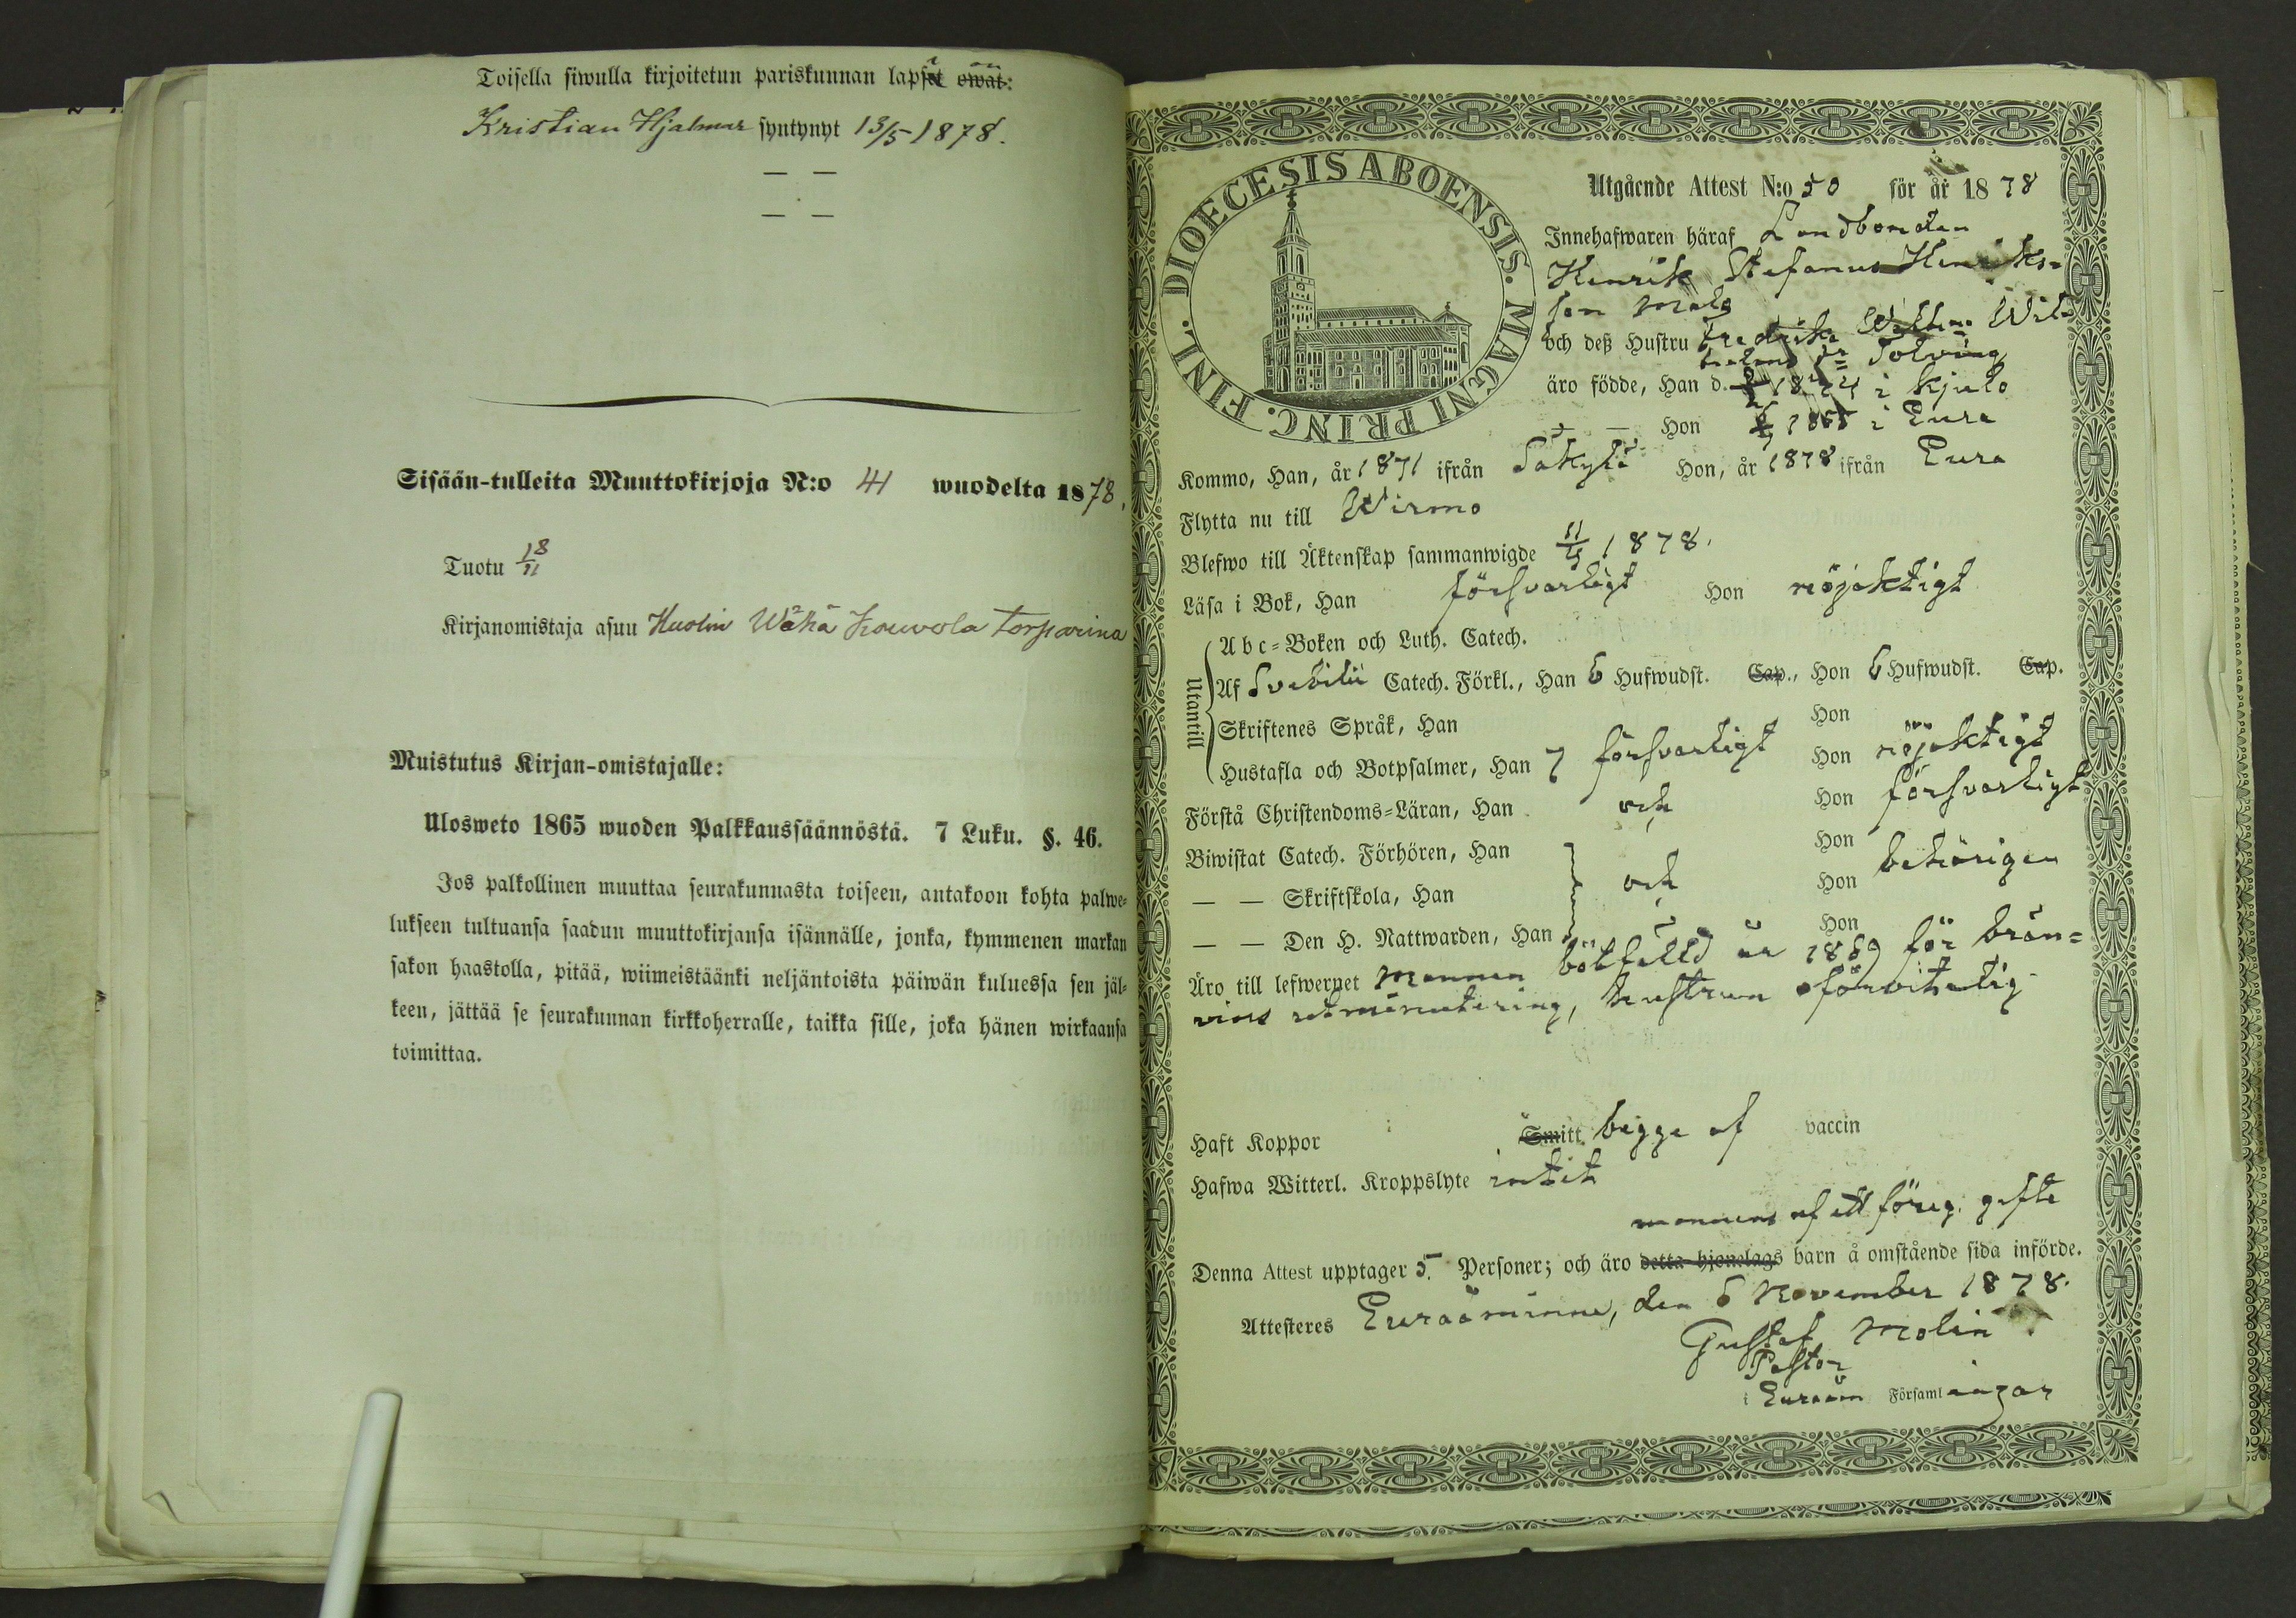 Toisella siwulla kirjoitetun pariskunnan lapset owat:
i on
Kristian Hjalmar syntynyt 13/5 1878.
— —
— —
Sisään-tulleita Muuttokirjoja N:o 41 wuodelta 1878.
Tuotu 18/11
Kirjanomistaja asuu Huolin Wähä Kouvola torparina
Muistutus Kirjan-omistajalle:
Ulosweto 1865 wuoden Palkkaussäännöstä. 7 Luku. §. 46.
Jos palkollinen muuttaa seurakunnasta toiseen, antakoon kohta palwe-
lukseen tultuansa saadun muuttokirjansa isännälle, jonka, kymmenen markan
sakon haastolla, pitää, wiimeistäänki neljäntoista päiwän kuluessa sen jäl-
keen, jättää se seurakunnan kirkkoherralle, taikka sille, joka hänen wirkaansa
toimittaa.
DIOECESIS ABOENSIS. MAGNI PRINC. FINL.
Utgående Attest N:o 50 för år 1878
Innehafwaren häraf Landbonden
Henrik Stefanus Henriks-
son Malg
och deß Hustru Fredrika Wilhe Wil-
helms dr Solving
äro födde, Han d. i Kjulo
— — Hon 1855 i Eura
Kommo, Han, år 1871 ifrån Säkylä Hon, år 1878 ifrån Eura
Flytta nu till Wirmo
Blefwo till Äktenskap sammanwigde 1878.
Läsa i Bok, Han försvarligt Hon nöjaktigt
Utantill
Abc-Boken och Luth. Catech.
Af Svebilii Catech. Förkl., Han 6 Hufwudst. Cap., Hon 6 Hufwudst. Cap.
Skriftenes Språk, Han Hon
Hustafla och Botpsalmer, Han 7 försvarligt Hon nöjaktigt
Förstå Christendoms-Läran, Han och Hon försvarligt
Biwistat Catech. Förhören, Han Hon
— — Skriftskola, Han och Hon behörigen
— — Den H. Nattwarden, Han Hon
Äro till lefwernet Mannen bötfälld år 1869 för brän-
vins utminutering, hustrun oförvitelig
Haft Koppor Smitt. bägge af vaccin
Hafwa Witterl. Kroppslyte intet
mannens af ett föreg. gifte
Denna Attest upptager 5. Personer; och äro detta hjonelags barn å omstående sida införde.
Attesteres Euraåminne, den 6 November 1878.
Gustaf Molin
Pastor
i Euraåm Församl ingar